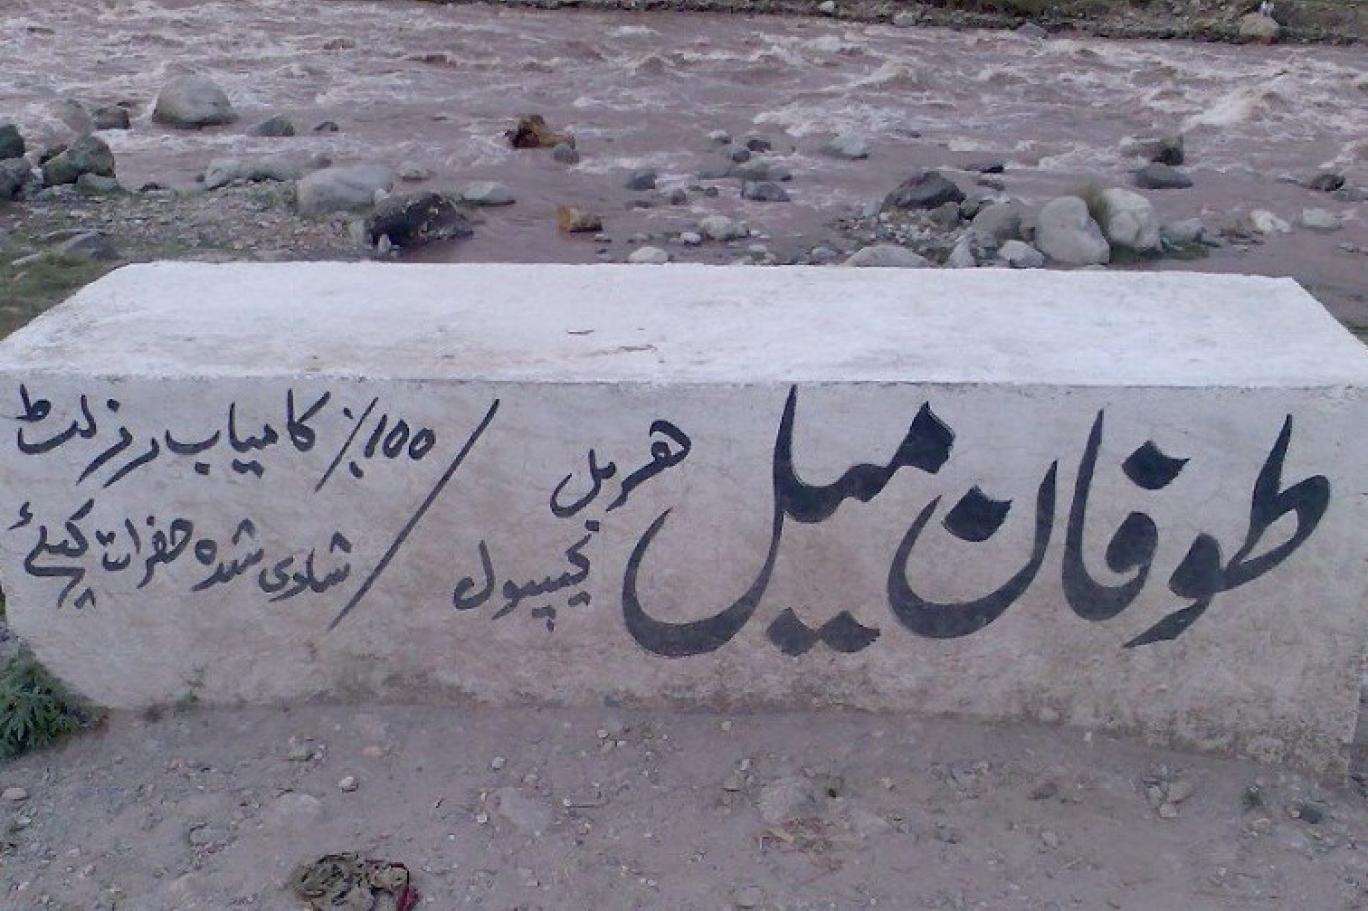 طوفان میل
ھربل
کیپسول
100٪ کامیاب رزلٹ
شادی شدہ حضرات کیلئے